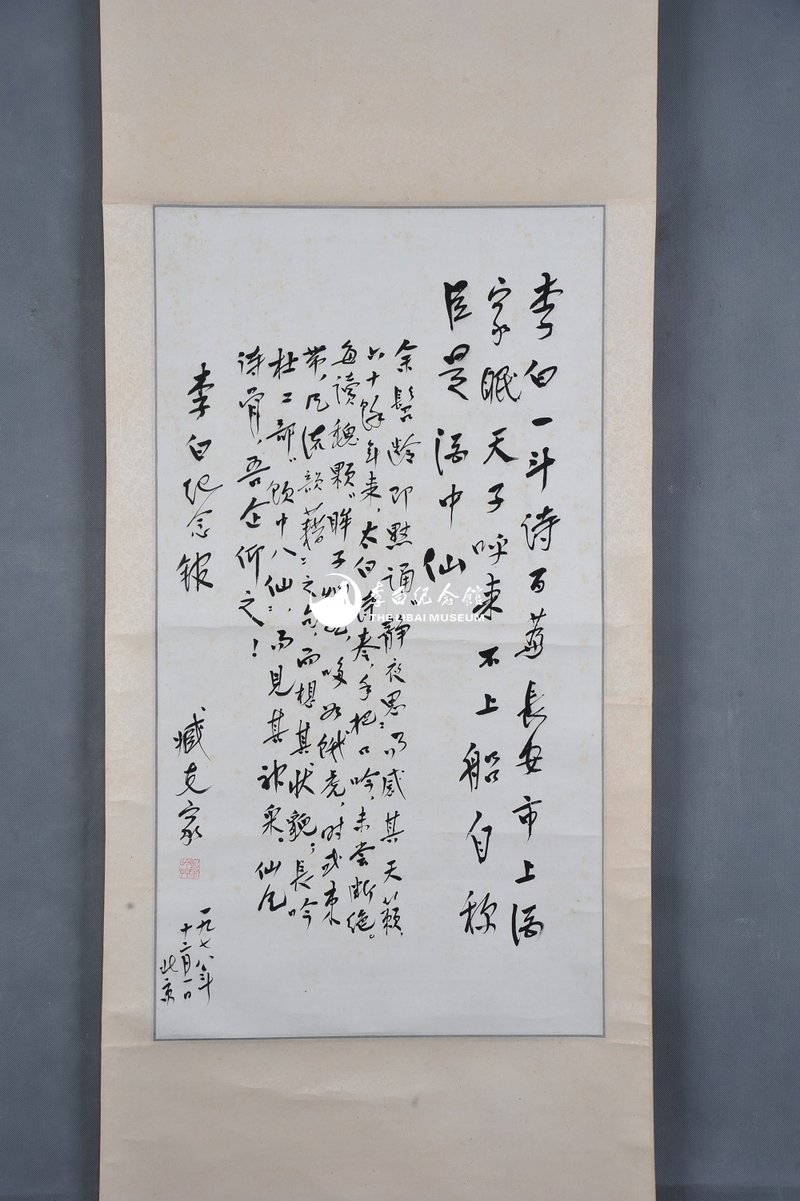 李白一斗诗百篇长安市上酒
家眠天子呼来不上船自称
臣是酒中仙
余髫龄即默诵“静夜思”，而感其天籁，
六十馀年来，太白 卷，手把口吟，未尝断绝。
每读魏颢“眸子炯然，哆如饿虎，时或束
带，风流韵藉”之句，而想其状貌；长吟
杜工部“饮中八仙”，而见其神采。仙风
诗骨，吾企仰之！
李白纪念馆
臧克家
一九七八年
十二月一日
北京
李白纪念馆
THE LIBAI MUSEUM